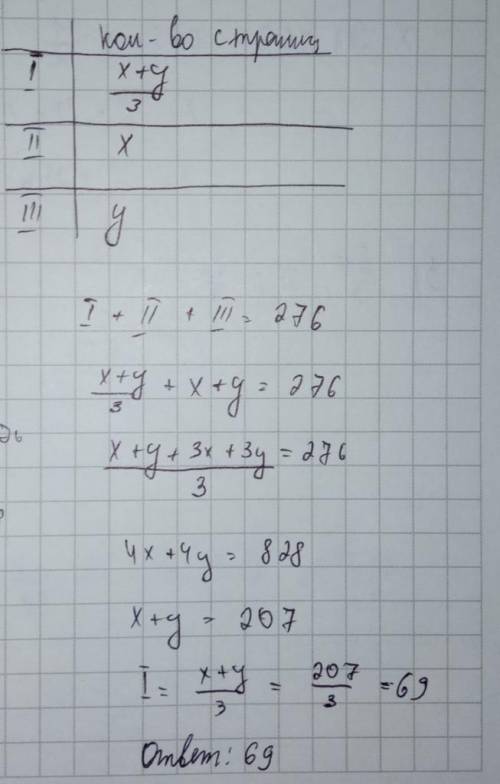 кол-во страниц
I (x+y)/3
II x
III y
I + II + III = 276
(x+y)/3 + x+y = 276
(x+y+3x+3y)/3 = 276
4x+4y = 828
x+y = 207
I = (x+y)/3 = 207/3 = 69
Ответ: 69